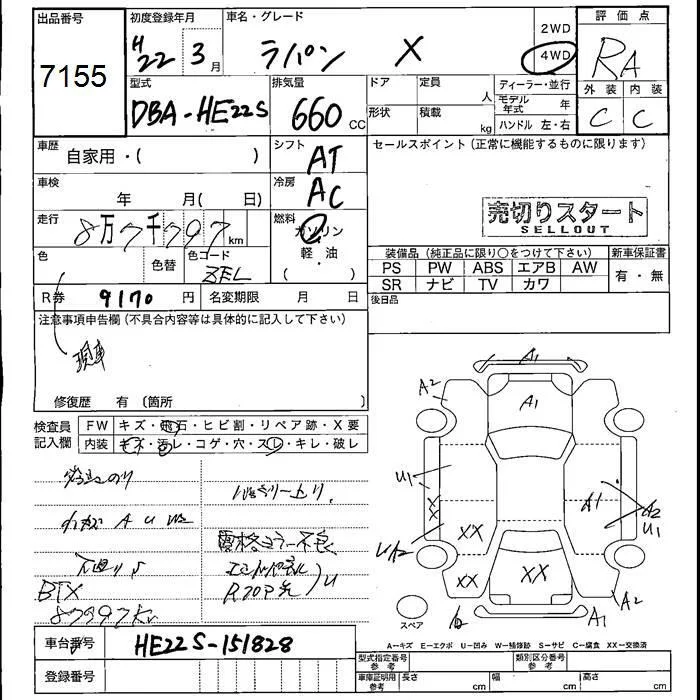 出品番号
7155
初度登録年月
H22年 3月
車名・グレード
ラパン X
2WD
4WD
評価点
RA
外装 内装
C C
型式
DBA-HE22S
排気量
660 CC
ドア 定員 人
形状 積載 kg
ディーラー・並行
モデル年式 年
ハンドル 左・右
車歴
自家用・( )
シフト
AT
セールスポイント(正常に機能するものに限ります)
車検
年 月( 日)
冷房
AC
売切りスタート
SELLOUT
走行
8万7千997km
燃料
ガソリン
軽・油
( )
色
色替
色コード
ZEL
装備品(純正品に限り○をつけて下さい)
新車保証書
PS PW ABS エアB AW
SR ナビ TV カワ
有・無
R券 9170円
名変期限 月 日
後日品
注意事項申告欄(不具合内容等は具体的に記入して下さい)
現車
修復歴 有〔箇所
検査員記入欄
FW キズ・飛石・ヒビ割・リペア跡・X要
内装 キズ・汚レ・コゲ・穴・スレ・キレ・破レ
A U W2
BTX
87997km
R70P
U
A1
A2
A1
U1
XX
A1
A2
U1
A2
XX
XX
XX
A1
A2
スペア
車台番号
HE22S-151828
登録番号
A=キズ E=エクボ U=凹み W=補修跡 S=サビ C=腐食 XX=交換済
型式指定番号 参考
類別区分番号 参考
車庫証明用 参考
長さ cm
幅 cm
高さ cm